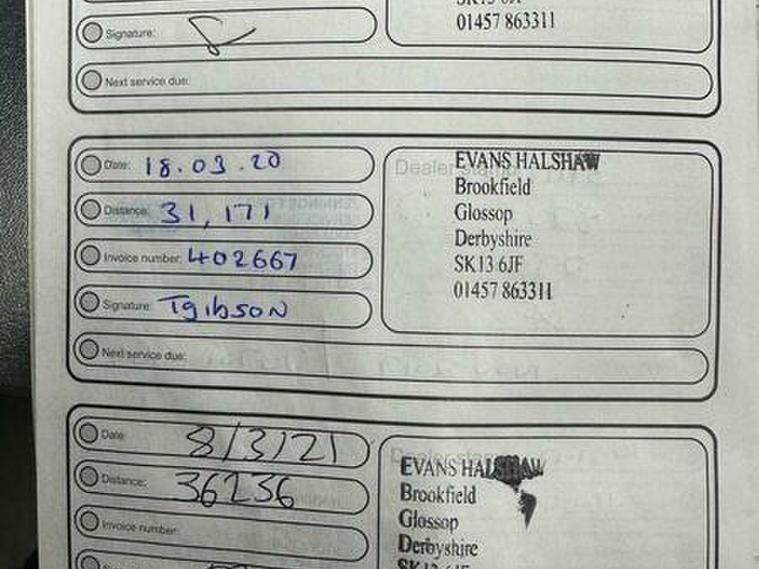 Signature:
01457 863311
Next service due:
Date: 18.03.20
Distance: 31,171
Invoice number: 402667
Signature: Tgibson
Next service due:
Dealer stamp
EVANS HALSHAW
Brookfield
Glossop
Derbyshire
SK13 6JF
01457 863311
Date: 8/3/21
Distance: 36236
Invoice number:
Dealer stamp
EVANS HALSHAW
Brookfield
Glossop
Derbyshire